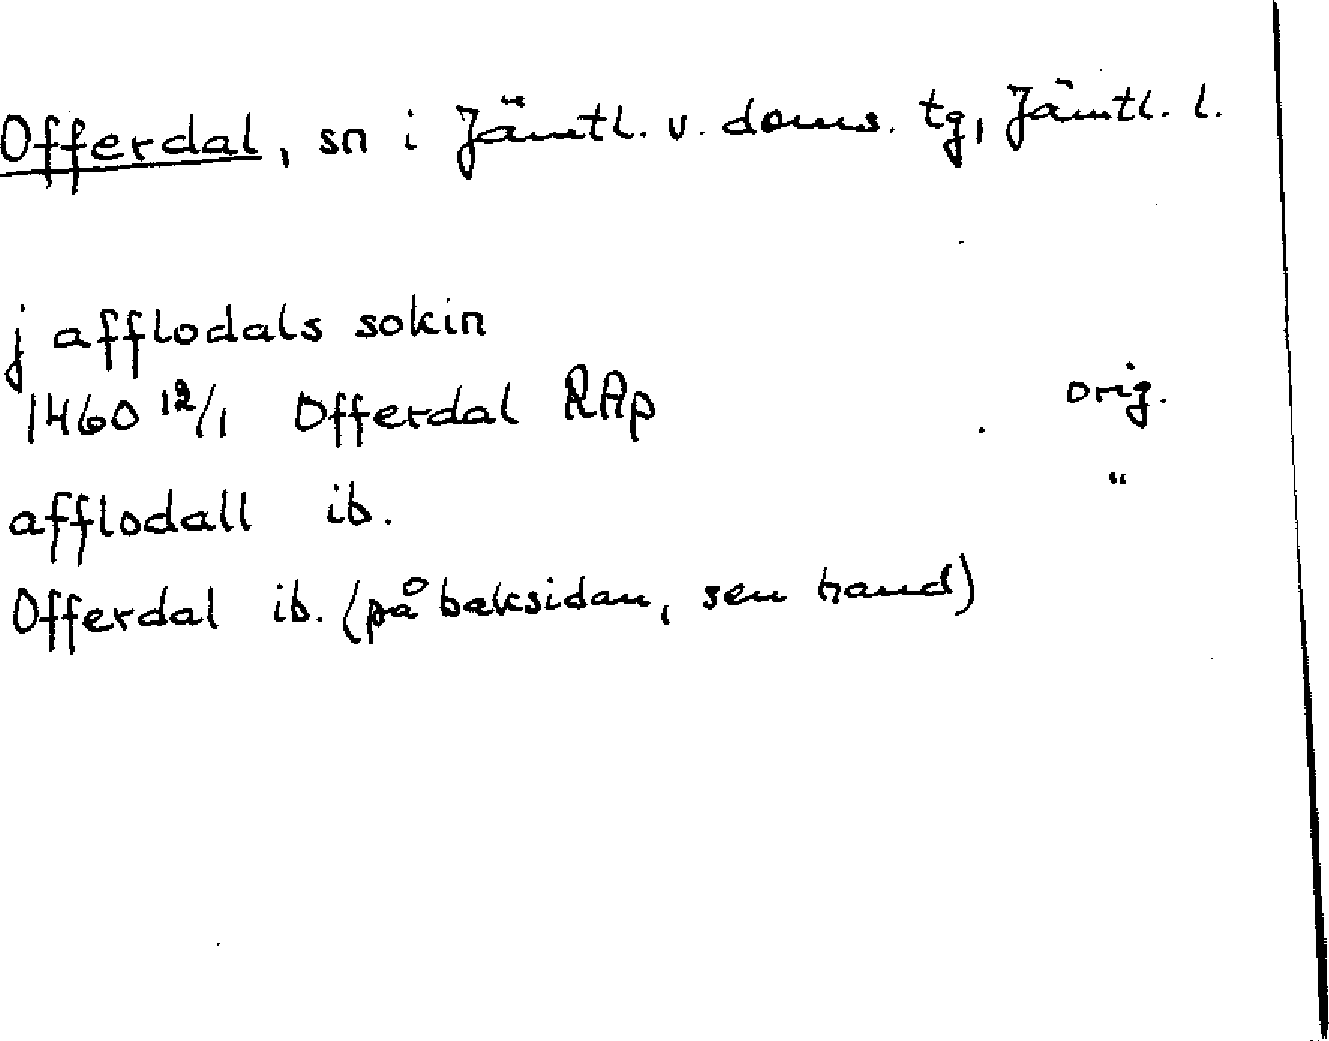 Offerdal, sn i Jämtl. v. doms. tg, Jämtl. l.
j afflodals sokin
1460 12/1 Offerdal RAp orig.
afflodall ib. "
Offerdal ib. (på baksidan, sen hand)